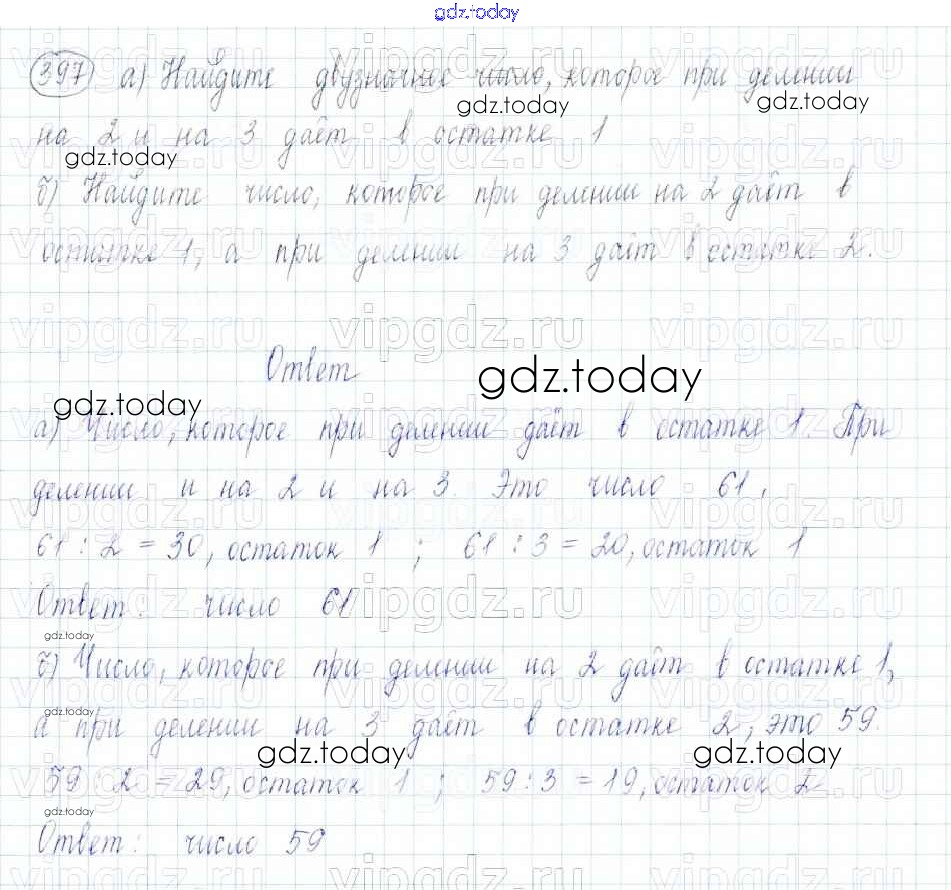 gdz.today
397 а) Найдите двузначное число, которое при делении
gdz.today gdz.today
на 2 и на 3 даёт в остатке 1
gdz.today
б) Найдите число, которое при делении на 2 даёт в
остатке 1, а при делении на 3 даёт в остатке 2.
vipgdz.ru vipgdz.ru vipgdz.ru
Ответ
gdz.today
gdz.today
а) Число, которое при делении даёт в остатке 1. При
делении и на 2 и на 3. Это число 61,
61 : 2 = 30, остаток 1 ; 61 : 3 = 20, остаток 1
Ответ: число 61
gdz.today
б) Число, которое при делении на 2 даёт в остатке 1,
gdz.today
а при делении на 3 даёт в остатке 2, это 59.
gdz.today gdz.today
59 2 = 29, остаток 1 ; 59 : 3 = 19, остаток 2
gdz.today
Ответ: число 59